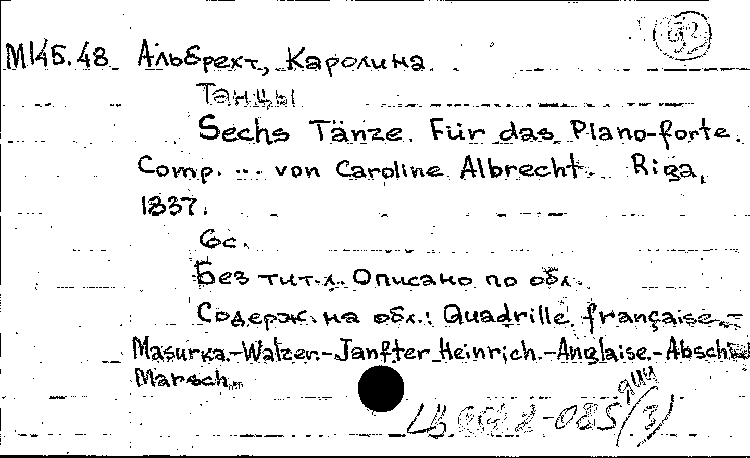 92
М145.48 Альбрехт, Каролина
Танцы
Sechs Tänze. Für das Piano-forte.
Comp. ... von Caroline Albrecht. Riga,
1837.
6с.
Без тит. л. Описано по обл.
Содерж. на обл.: Quadrille française.-
Masurka.-Walzer.-Janfter Heinrich.-Anglaise.-Absch
Marsch.
-085 (3)